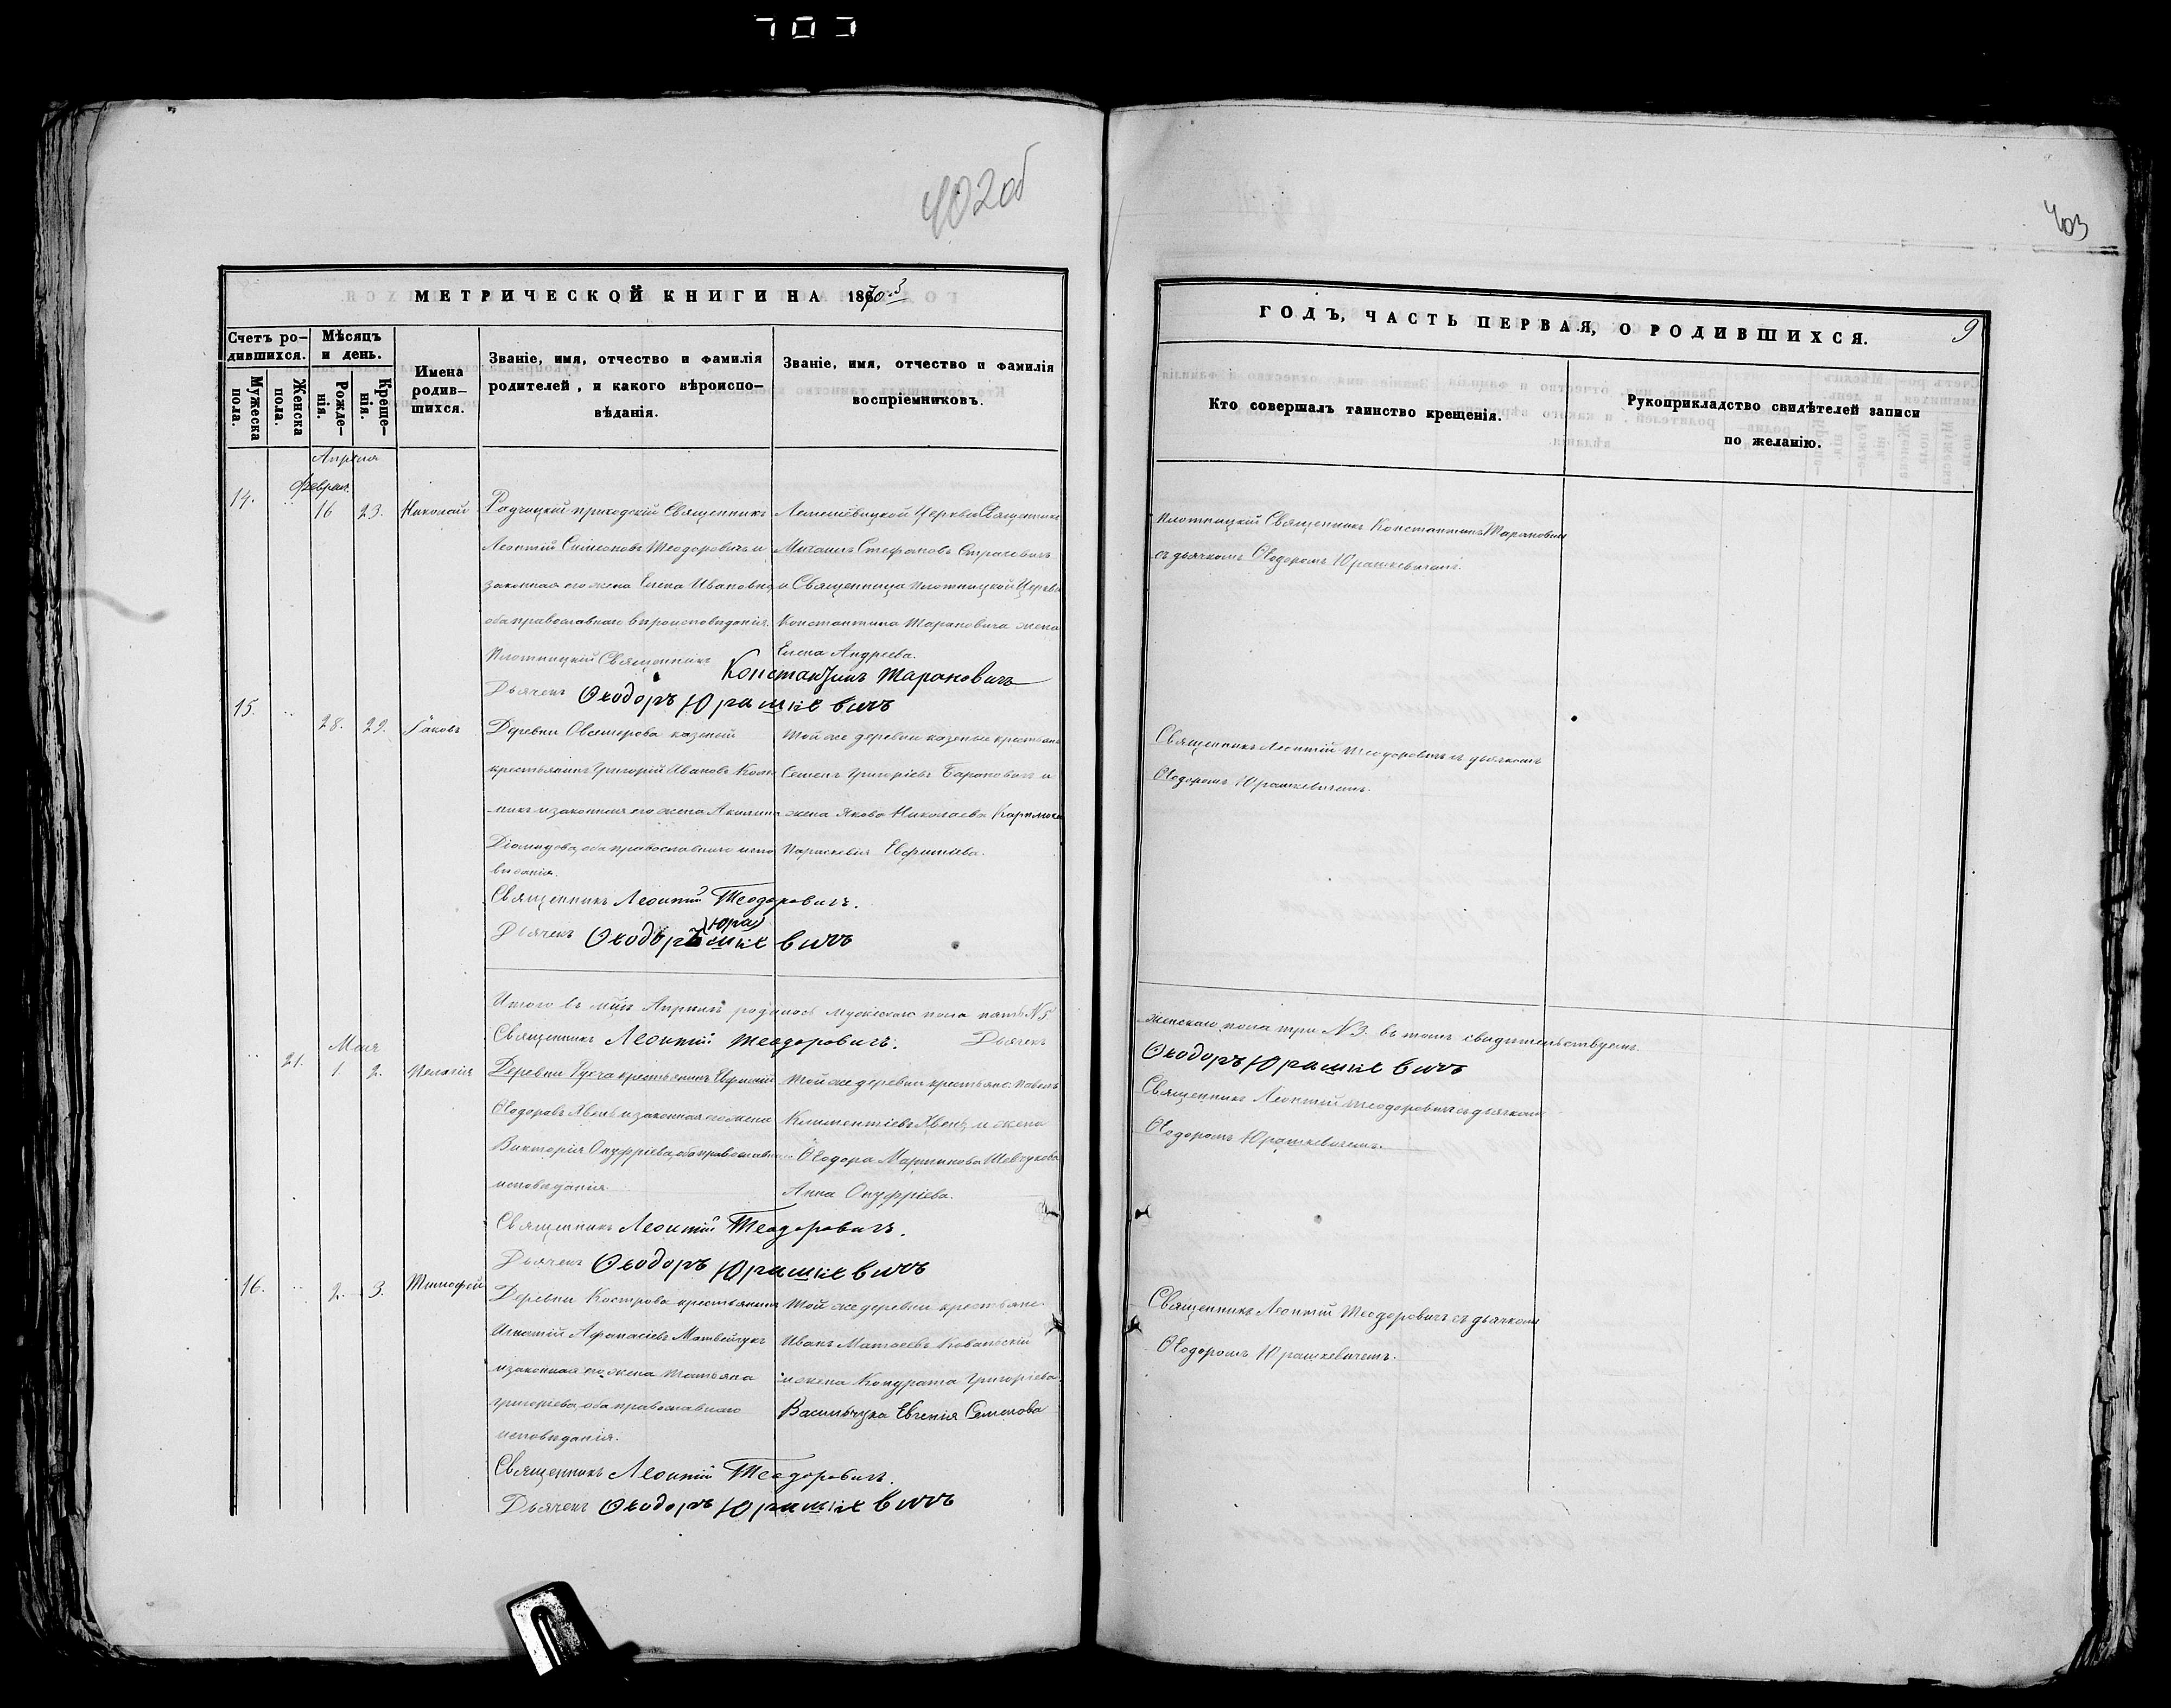 703
402об
МЕТРИЧЕСКОЙ КНИГИ НА 1870.3
Счетъ ро-
дившихся.
Мѣсяцъ
и день.
Мужеска
пола.
Женска
пола.
Рожде-
нія.
Креще-
нія.
Имена
родив-
шихся.
Званіе, имя, отчество и фамилія
родителей, и какого вѣроиспо-
вѣданія.
Званіе, имя, отчество и фамилія
воспріемниковъ.
Апрѣля
Феврал.
14. 16 23. Николай
приходскій Священникъ
Леонтій Симеоновъ Теодоровичъ и
законная его жена Елена Ивановна
оба православнаго вѣроисповѣданія.
Церкви Священникъ
Михаилъ Стефановъ
и Священника Плотницкой Церкви
Константина Тарановича жена
Елена Андреева.
Плотницкій Священникъ Константинъ Тарановичъ
Дьячекъ Ѳеодоръ Юрашкевичъ
15. 28. 29. Іаковъ
Деревни казеный
крестьянинъ Григорій Ивановъ
никъ и законная его жена Акилина
Діомидова, оба православнаго испо
вѣданія.
Той же деревни казеные крестьяне
Семенъ Григоріевъ Бароновъ и
жена Якова Николаева
Параскевія Евфиміева.
Священникъ Леонтій Теодоровичъ.
Дьячекъ Ѳеодоръ Юрашкевичъ
Итого въ м-цѣ Апрѣлѣ родилось мужескаго пола пять №5
Священникъ Леонтій Теодоровичъ. Дьячекъ
Мая
21. 1. 2. Пелагія
Деревни крестьянинъ Евфимій
Ѳеодоровъ и законная его жена
Викторія Онуфріева, оба православнаго
исповѣданія.
Той же деревни крестьяне: Павелъ
Климентіевъ и жена
Ѳеодора Мартинова Шевчукова
Анна Онуфріева.
Священникъ Леонтій Теодоровичъ.
Дьячекъ Ѳеодоръ Юрашкевичъ
16. 2. 3. Тимофей
Деревни Кострова крестьянинъ
Игнатій Афанасіевъ Матвейчукъ
и законная его жена Татьяна
Григоріева, оба православнаго
исповѣданія.
Той же деревни крестьяне
Иванъ Матвеевъ
и жена Кондрата Григоріева
Васильчука Евгенія Семенова
Священникъ Леонтій Теодоровичъ.
Дьячекъ Ѳеодоръ Юрашкевичъ
403
ГОДЪ, ЧАСТЬ ПЕРВАЯ, О РОДИВШИХСЯ.
9
Кто совершалъ таинство крещенія.
Рукоприкладство свидѣтелей записи
по желанію.
Плотницкій Священникъ Константинъ Тарановичъ
съ дьячкомъ Ѳеодоромъ Юрашкевичемъ.
Священникъ Леонтій Теодоровичъ съ дьячкомъ
Ѳеодоромъ Юрашкевичемъ.
женскаго пола три №3. въ томъ свидѣтельствуемъ.
Ѳеодоръ Юрашкевичъ
Священникъ Леонтій Теодоровичъ съ дьячкомъ
Ѳеодоромъ Юрашкевичемъ.
Священникъ Леонтій Теодоровичъ съ дьячкомъ
Ѳеодоромъ Юрашкевичемъ.